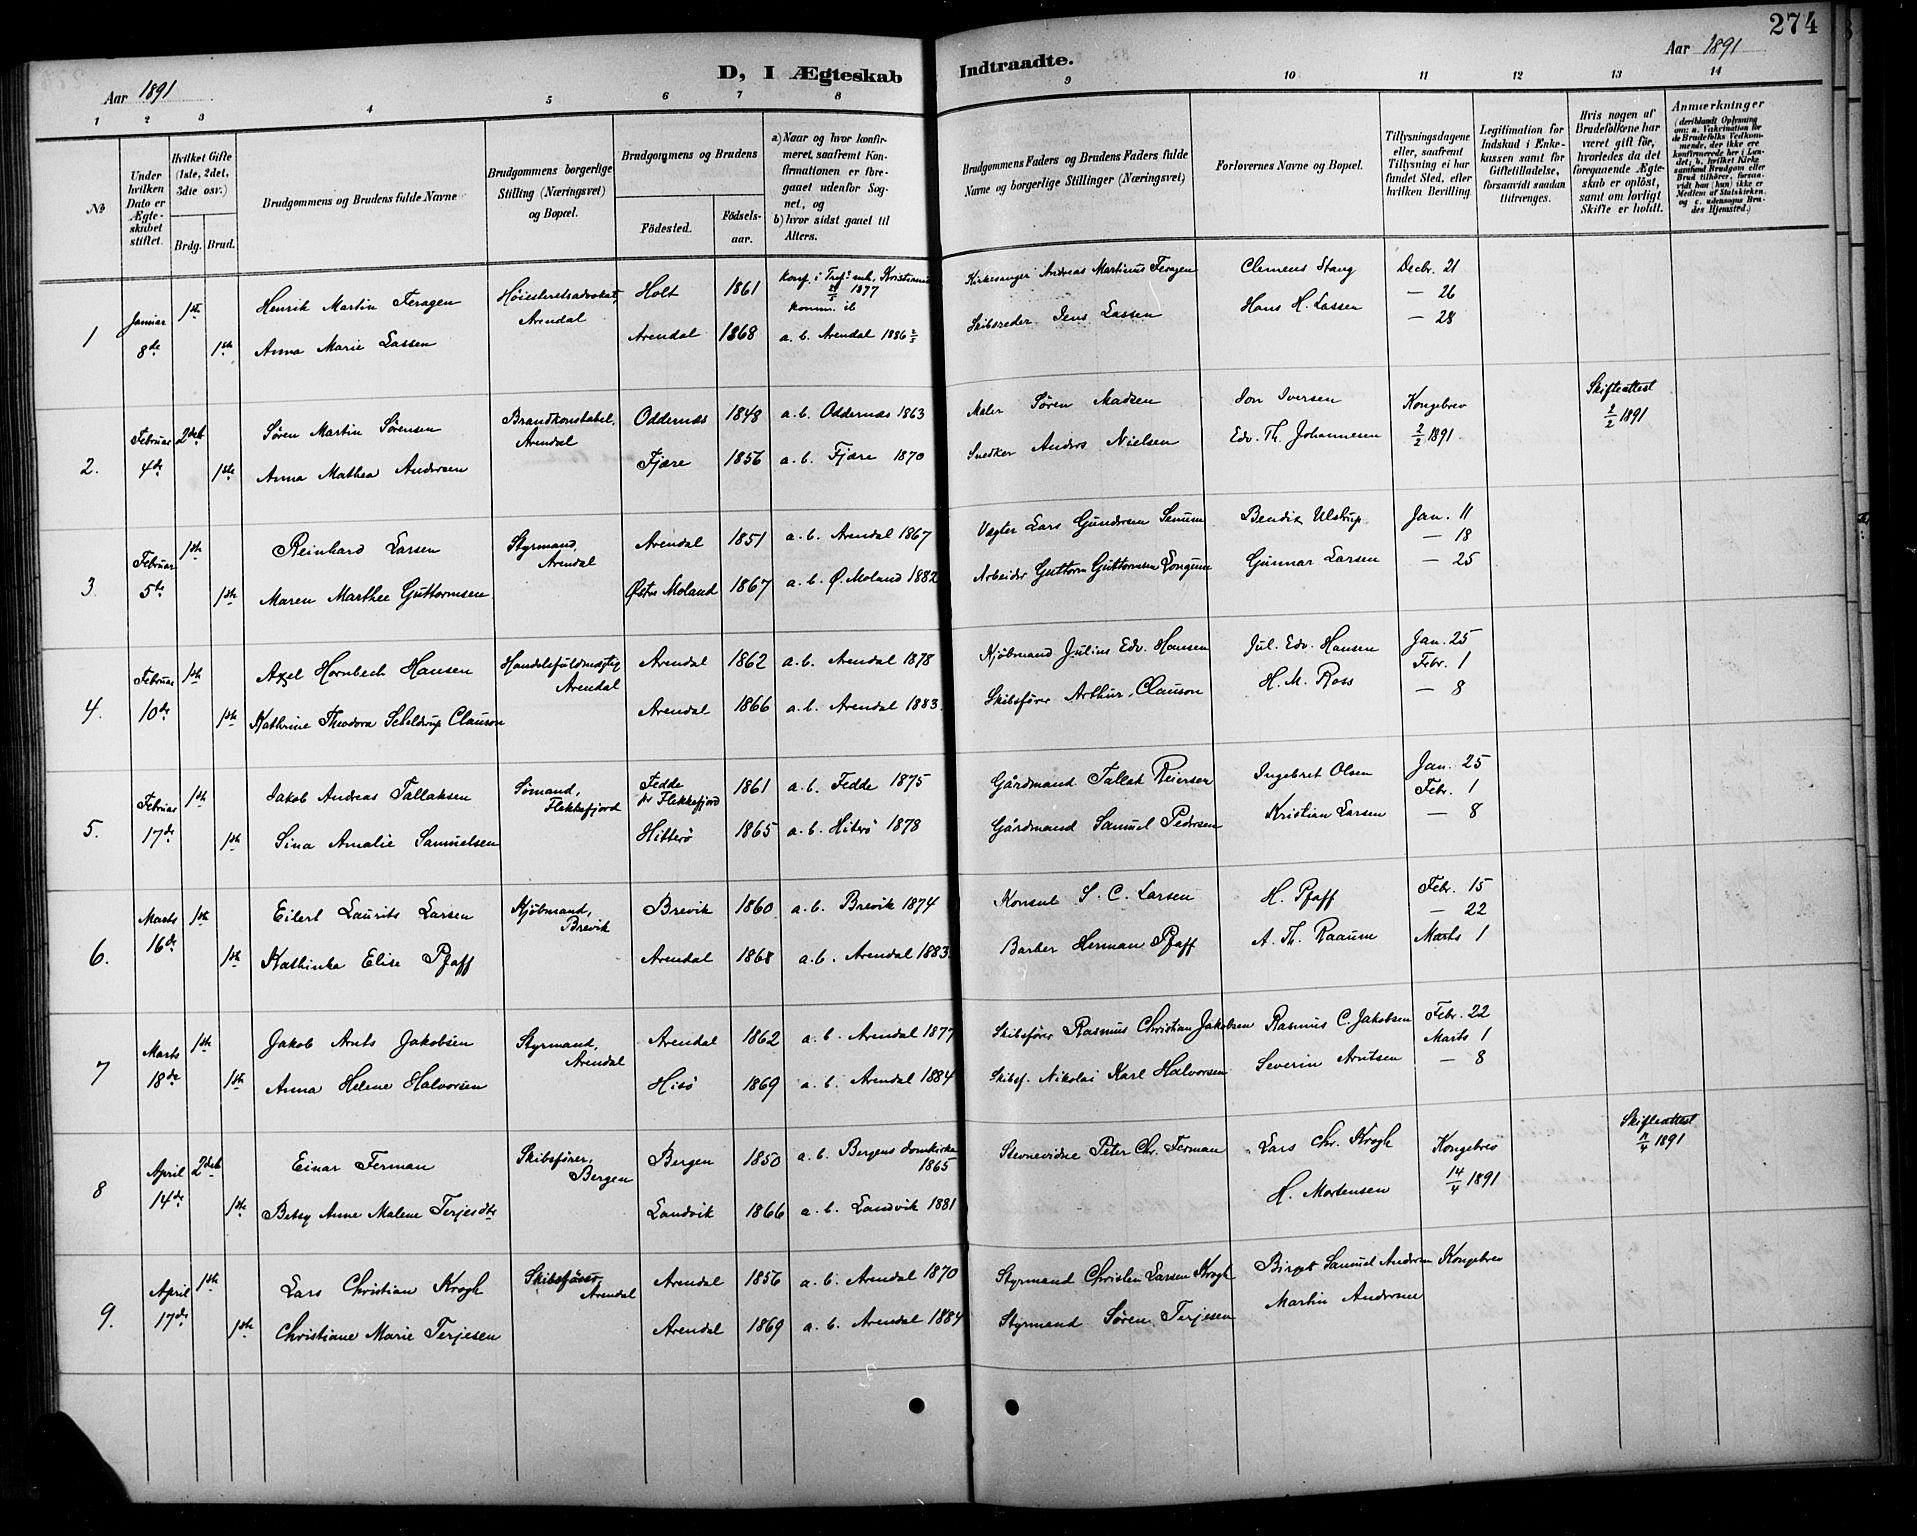 274
Aar 1891
D, I Ægteskab Indtraadte.
Aar 1891
1 2 3 4 5 6 7 8 9 10 11 12 13 14
№
Under hvilken Dato er Ægteskabet stiftet.
Hvilket Gifte (1ste, 2det, 3die osv.)
Brdg. Brud.
Brudgommens og Brudens fulde Navne
Brudgommens borgerlige Stilling (Næringsvei) og Bopæl.
Brudgommens og Brudens
Födested.
Födselsaar.
a) Naar og hvor konfirmeret, saafremt Konfirmationen er foregaaet udenfor Sognet, og
b) hvor sidst gaaet til Alters.
Brudgommens Faders og Brudens Faders fulde Navne og borgerlige Stillinger (Næringsvei)
Forlovernes Navne og Bopæl.
Tillysningsdagene eller, saafremt Tillysning ei har fundet Sted, efter hvilken Bevilling.
Legitimation for Indskud i Enkekassen samt for Giftetilladelse, forsaavidt saadan tiltrænges.
Hvis nogen af Brudefolkene har været gift før, hvorledes da det foregaaende Ægteskab er oplöst, samt om lovligt Skifte er holdt.
Anmærkninger (deriblandt Oplysning om: a. Vaksination for de Brudefolks Vedkommende, der ikke ere konfirmerede her i Landet, b. hvilket Kirkesamfund Brudgom eller Brud tilhörer, forsaavidt han (hun) ikke er Medlem af Statskirken, og c. udensogns Brudes Hjemsted.)
1 Januar 8de 1ste Henrik Martin Feragen Høiesteretsadvokat, Arendal Holt 1861 Konf. i Tref. mh. Kristiania 1877 komm. ib Kirkesanger Andreas Martinus Feragen Clemens Stang Decbr. 21
1ste Anna Marie Lassen Arendal 1868 a. b. Arendal 1886 Skibsreder Jens Lassen Hans H. Lassen — 26
— 28
2. Februar 4de 2det Søren Martin Sørensen Brandkonstabel, Arendal Oddernæs 1848 a. b. Oddernæs 1863 Maler Søren Madsen Jon Iversen Kongebrev 2/2 1891 Skifteattest 2/2 1891
1ste Anna Mathea Andersen Fjære 1856 a. b. Fjære 1870 Snedker Anders Nielsen Edv. Th. Johannesen
3. Februar 5te 1ste Reinhard Larsen Styrmand, Arendal Arendal 1851 a. b. Arendal 1867 Vægter Lars Gundersen Senum Bendix Ulstrup Jan. 11
— 18
1ste Maren Marthee Guttormsen Østre Moland 1867 a. b. Ø. Moland 1882 Arbeider Guttorm Guttormsen Longum Gunnar Larsen — 25
4. Februar 10de 1ste Axel Hornbech Hansen Handelsfuldmægtig, Arendal Arendal 1862 a. b. Arendal 1878 Kjøbmand Julius Edv. Hansen Jul. Edv. Hansen Jan. 25
Febr. 1
1ste Kathrine Theodora Scheldrup Clauson Arendal 1866 a. b. Arendal 1883. Skibsfører Arthur Clauson H. M. Ross — 8
5. Februar 17de 1ste Jakob Andreas Tallaksen Sømand, Flekkefjord Fedde pr Flekkefjord 1861 a. b. Fedde 1875 Gårdmand Tallak Reiersen Ingebret Olsen Jan. 25
Febr. 1
1ste Sina Amalie Samuelsen Hitterø 1865 a. b. Hiterø 1878 Gårdmand Samuel Pedersen Kristian Larsen — 8
6. Marts 16de 1ste Eilert Laurits Larsen Kjøbmand, Brevik Brevik 1860 a. b. Brevik 1874 Konsul S. C. Larsen H. Pfaff Febr. 15
— 22
1ste Kathinka Elise Pfaff Arendal 1868 a. b. Arendal 1883. Barber Herman Pfaff A. Th. Raaum Marts 1
7 Marts 18de 1ste Jakob Arnts Jakobsen Styrmand, Arendal Arendal 1862 a. b. Arendal 1877 Skibsfører Rasmus Christian Jakobsen Rasmus C. Jakobsen Febr. 22
Marts 1
1ste Anna Helene Halvorsen Hisø 1869 a. b. Arendal 1884 Skibsf. Nikolai Karl Halvorsen Severin Arntsen — 8
8 April 14de 2det Einar Ferman Skibsfører, Bergen Bergen 1850 a. b. Bergens domkirke 1865 Stevnevidne Peter Chr. Ferman Lars Chr. Krogh Kongebrev 14/4 1891 Skifteattest 1891
1ste Betsy Anne Malene Terjesdtr Landvik 1866 a. b. Landvik 1881 H. Mortensen
9. April 17de 1ste Lars Christian Krogh Skibsfører, Arendal Arendal 1856 a. b. Arendal 1870 Styrmand Christen Larsen Krogh Birget Samuel Andersen Kongebrev
1ste Christiane Marie Terjesen Arendal 1869 a. b. Arendal 1884 Styrmand Søren Terjesen Martin Andersen